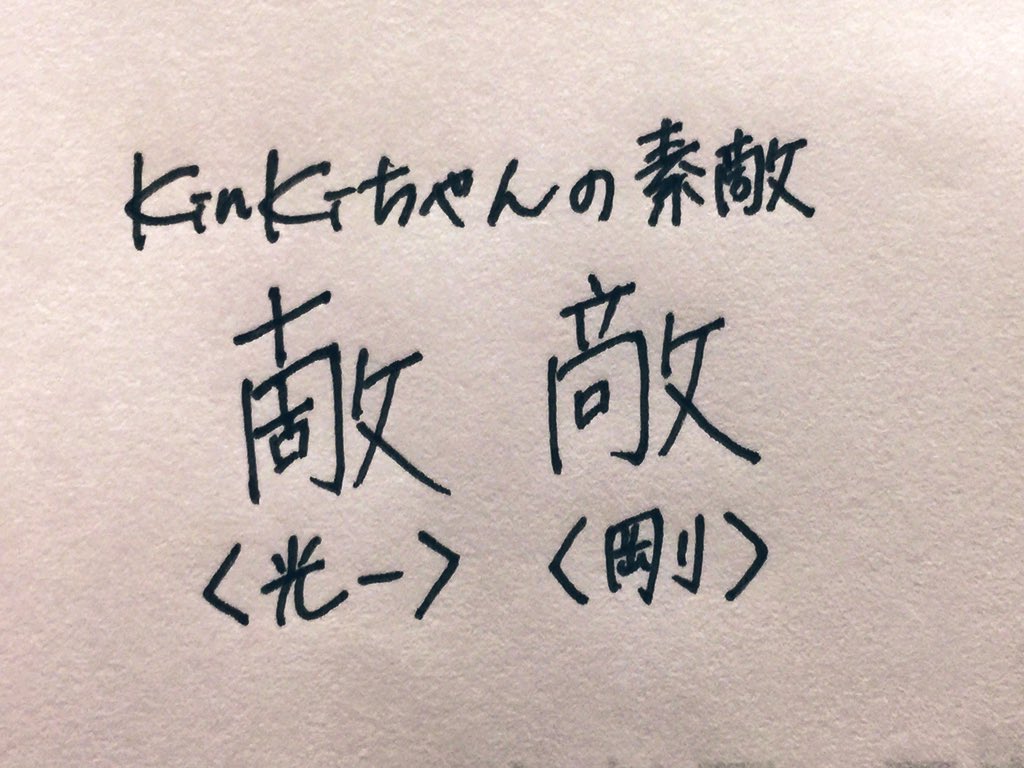 KinKiちゃんの素敵
敵 敵
〈光一〉 〈剛〉